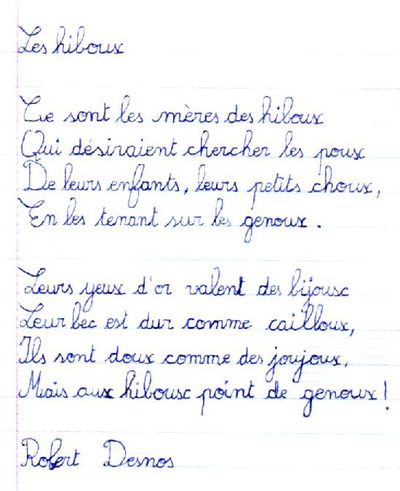 Les hiboux
Ce sont les mères des hiboux
Qui désiraient chercher les poux
De leurs enfants, leurs petits choux,
En les tenant sur les genoux.
Leurs yeux d'or valent des bijoux
Leur bec est dur comme cailloux,
Ils sont doux comme des joujoux,
Mais aux hiboux point de genoux!
Robert Desnos